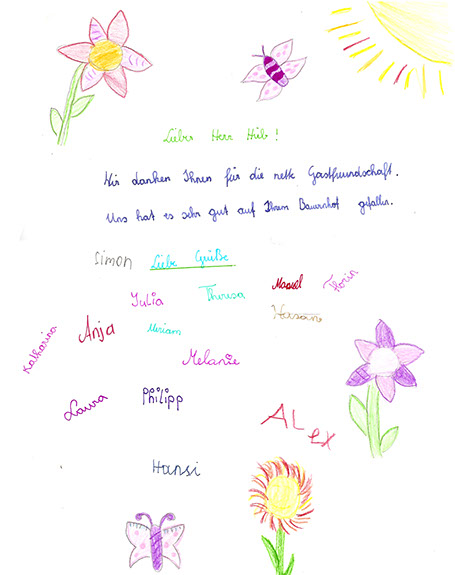 Lieber Herr Hub!
Wir danken Ihnen für die nette Gastfreundschaft.
Uns hat es sehr gut auf Ihrem Bauernhof gefallen.
Simon Liebe Grüße
Julia Theresa Manuel Florin
Katharina Anja Miriam Hasan
Melanie
Laura Philipp
Alex
Hansi